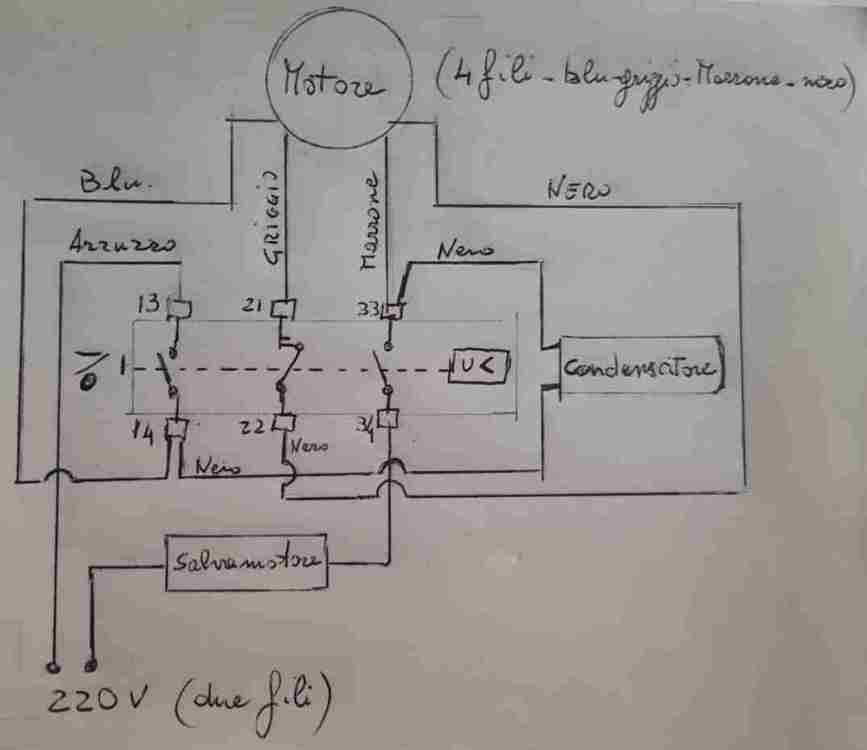 Motore
(4 fili - blu-grigio-Marrone-nero)
Blu.
GRIGGIO
Marrone
NERO
Azzurro
Nero
13
21
33
I
0
U<
Condensatore
14
22
34
Nero
Nero
Salvamotore
220V (due fili)